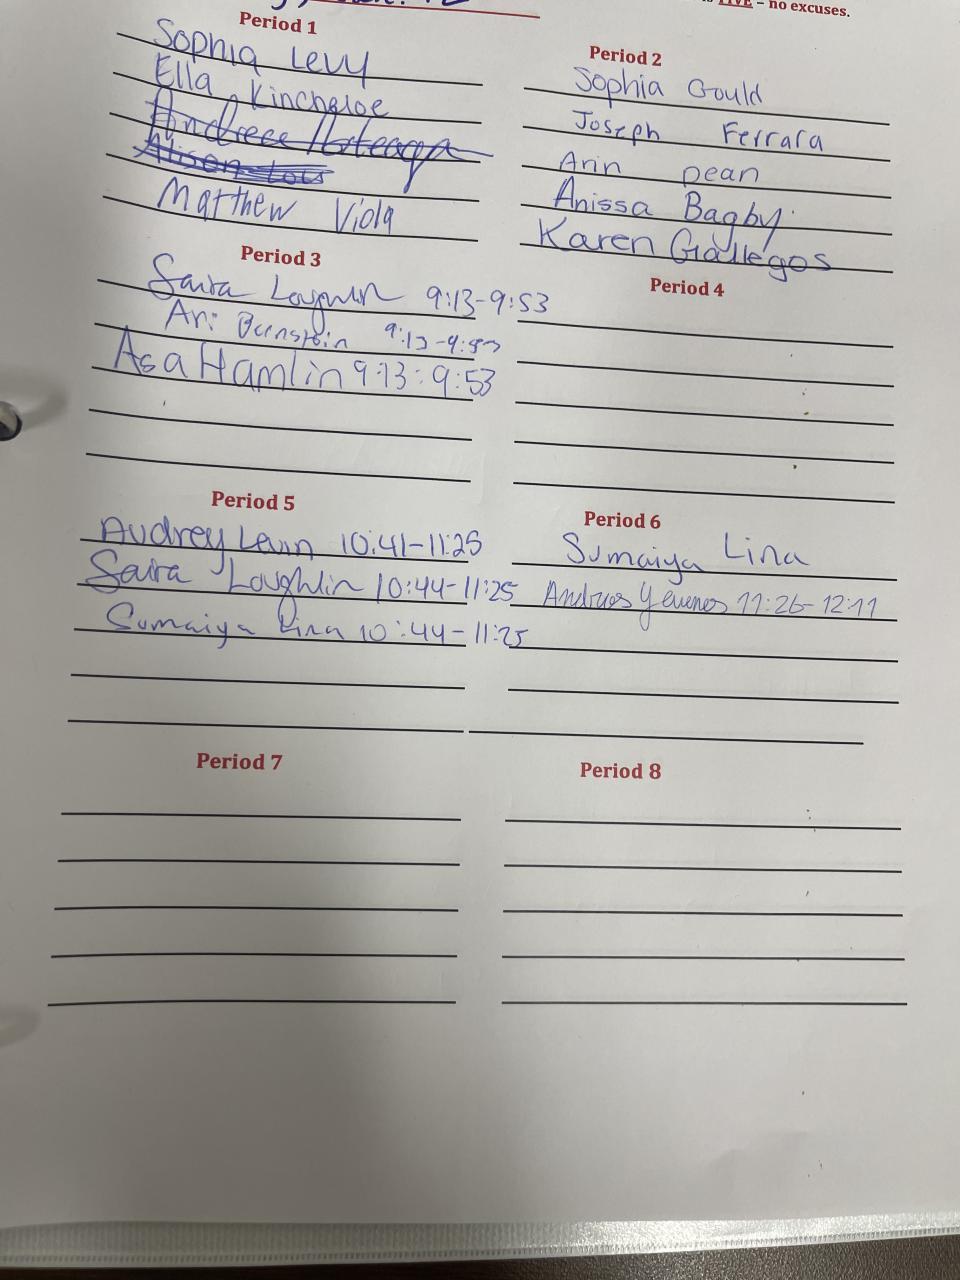 LIVE – no excuses.
Period 1
Sophia Levy
Ella Kincheloe
Matthew Viola
Period 2
Sophia Gould
Joseph Ferrara
Arin Dean
Anissa Bagby
Karen Gallegos
Period 3
Saira Loughlin 9:13-9:53
Ari Bernstein 9:13-9:53
Asa Hamlin 9:13:9:53
Period 4
Period 5
Audrey Levin 10:41-11:25
Saira Loughlin 10:44-11:25
Sumaiya Lina 10:44-11:25
Period 6
Sumaiya Lina
11:26-12:11
Period 7
Period 8